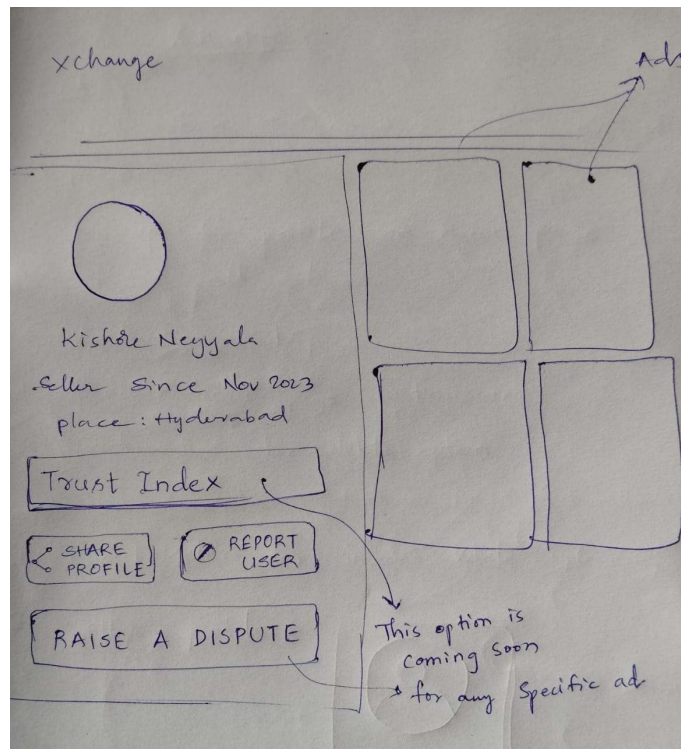 xchange
Ads
Kishore Neyyala
Seller Since Nov 2023
place : Hyderabad
Trust Index
SHARE
PROFILE
REPORT
USER
RAISE A DISPUTE
This option is
coming soon
for any specific ad